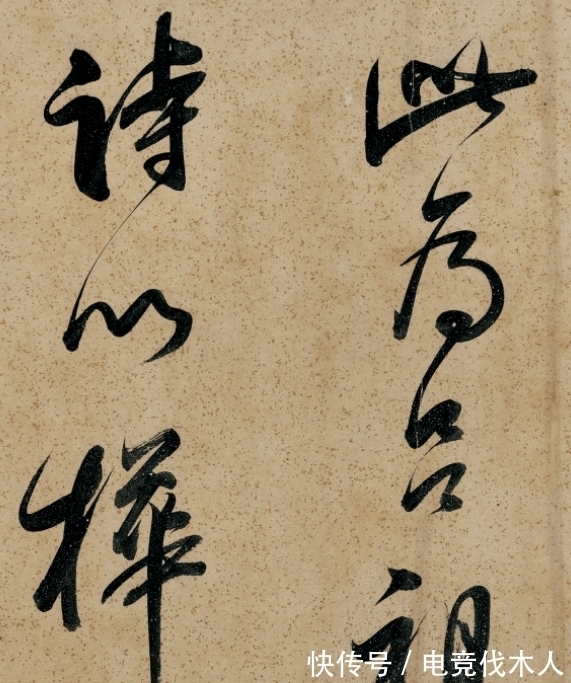 此為呂祖
詩以樺
快传号/电竞伐木人